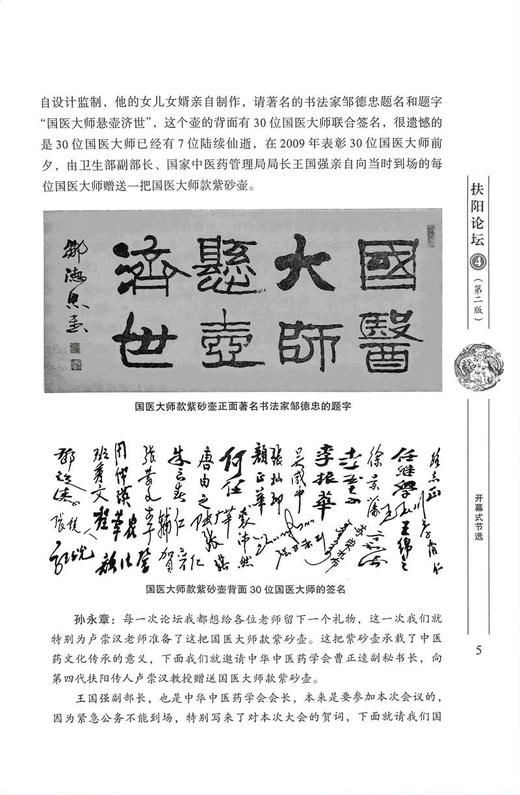 自设计监制，他的女儿女婿亲自制作，请著名的书法家邹德忠题名和题字
“国医大师悬壶济世”，这个壶的背面有 30 位国医大师联合签名，很遗憾的
是 30 位国医大师已经有 7 位陆续仙逝，在 2009 年表彰 30 位国医大师前
夕，由卫生部副部长、国家中医药管理局局长王国强亲自向当时到场的每
位国医大师赠送一把国医大师款紫砂壶。
國醫
大師
懸壺
濟世
国医大师款紫砂壶正面著名书法家邹德忠的题字
李振华
何任
张灿玾
颜正华
唐由之
朱良春
张学文
班秀文
周仲瑛
任继学
国医大师款紫砂壶背面 30 位国医大师的签名
孙永章：每一次论坛我都想给各位老师留下一个礼物，这一次我们就
特别为卢崇汉老师准备了这把国医大师款紫砂壶。这把紫砂壶承载了中医
药文化传承的意义，下面我们就邀请中华中医药学会曹正逵副秘书长，向
第四代扶阳传人卢崇汉教授赠送国医大师款紫砂壶。
王国强副部长，也是中华中医药学会会长，本来是要参加本次会议的，
因为紧急公务不能到场，特别写来了对本次大会的贺词，下面就请我们国
扶阳论坛
4
（第二版）
开幕式节选
5